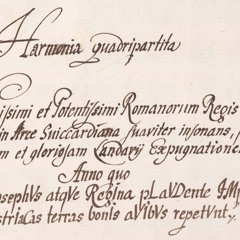 Harmonia quadripartita
issimi et Potentissimi Romanorum Regis
in Arce Suiccardiana suaviter insonans,
m et gloriosam Landavij Expugnatione
Anno quo
osephVs atqVe Regina pLaVDente IMP
striaCas terras bonIs aVIbVs repetVnt